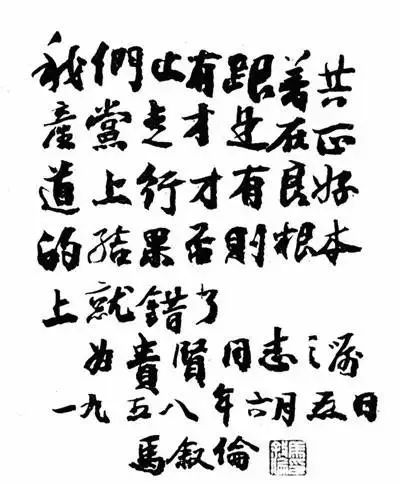 我們止有跟着共
產黨走才是在正
道上行才有良好
的結果否則根本
上就錯了
為貴賢同志之囑
一九五八年六月五日
馬叙倫